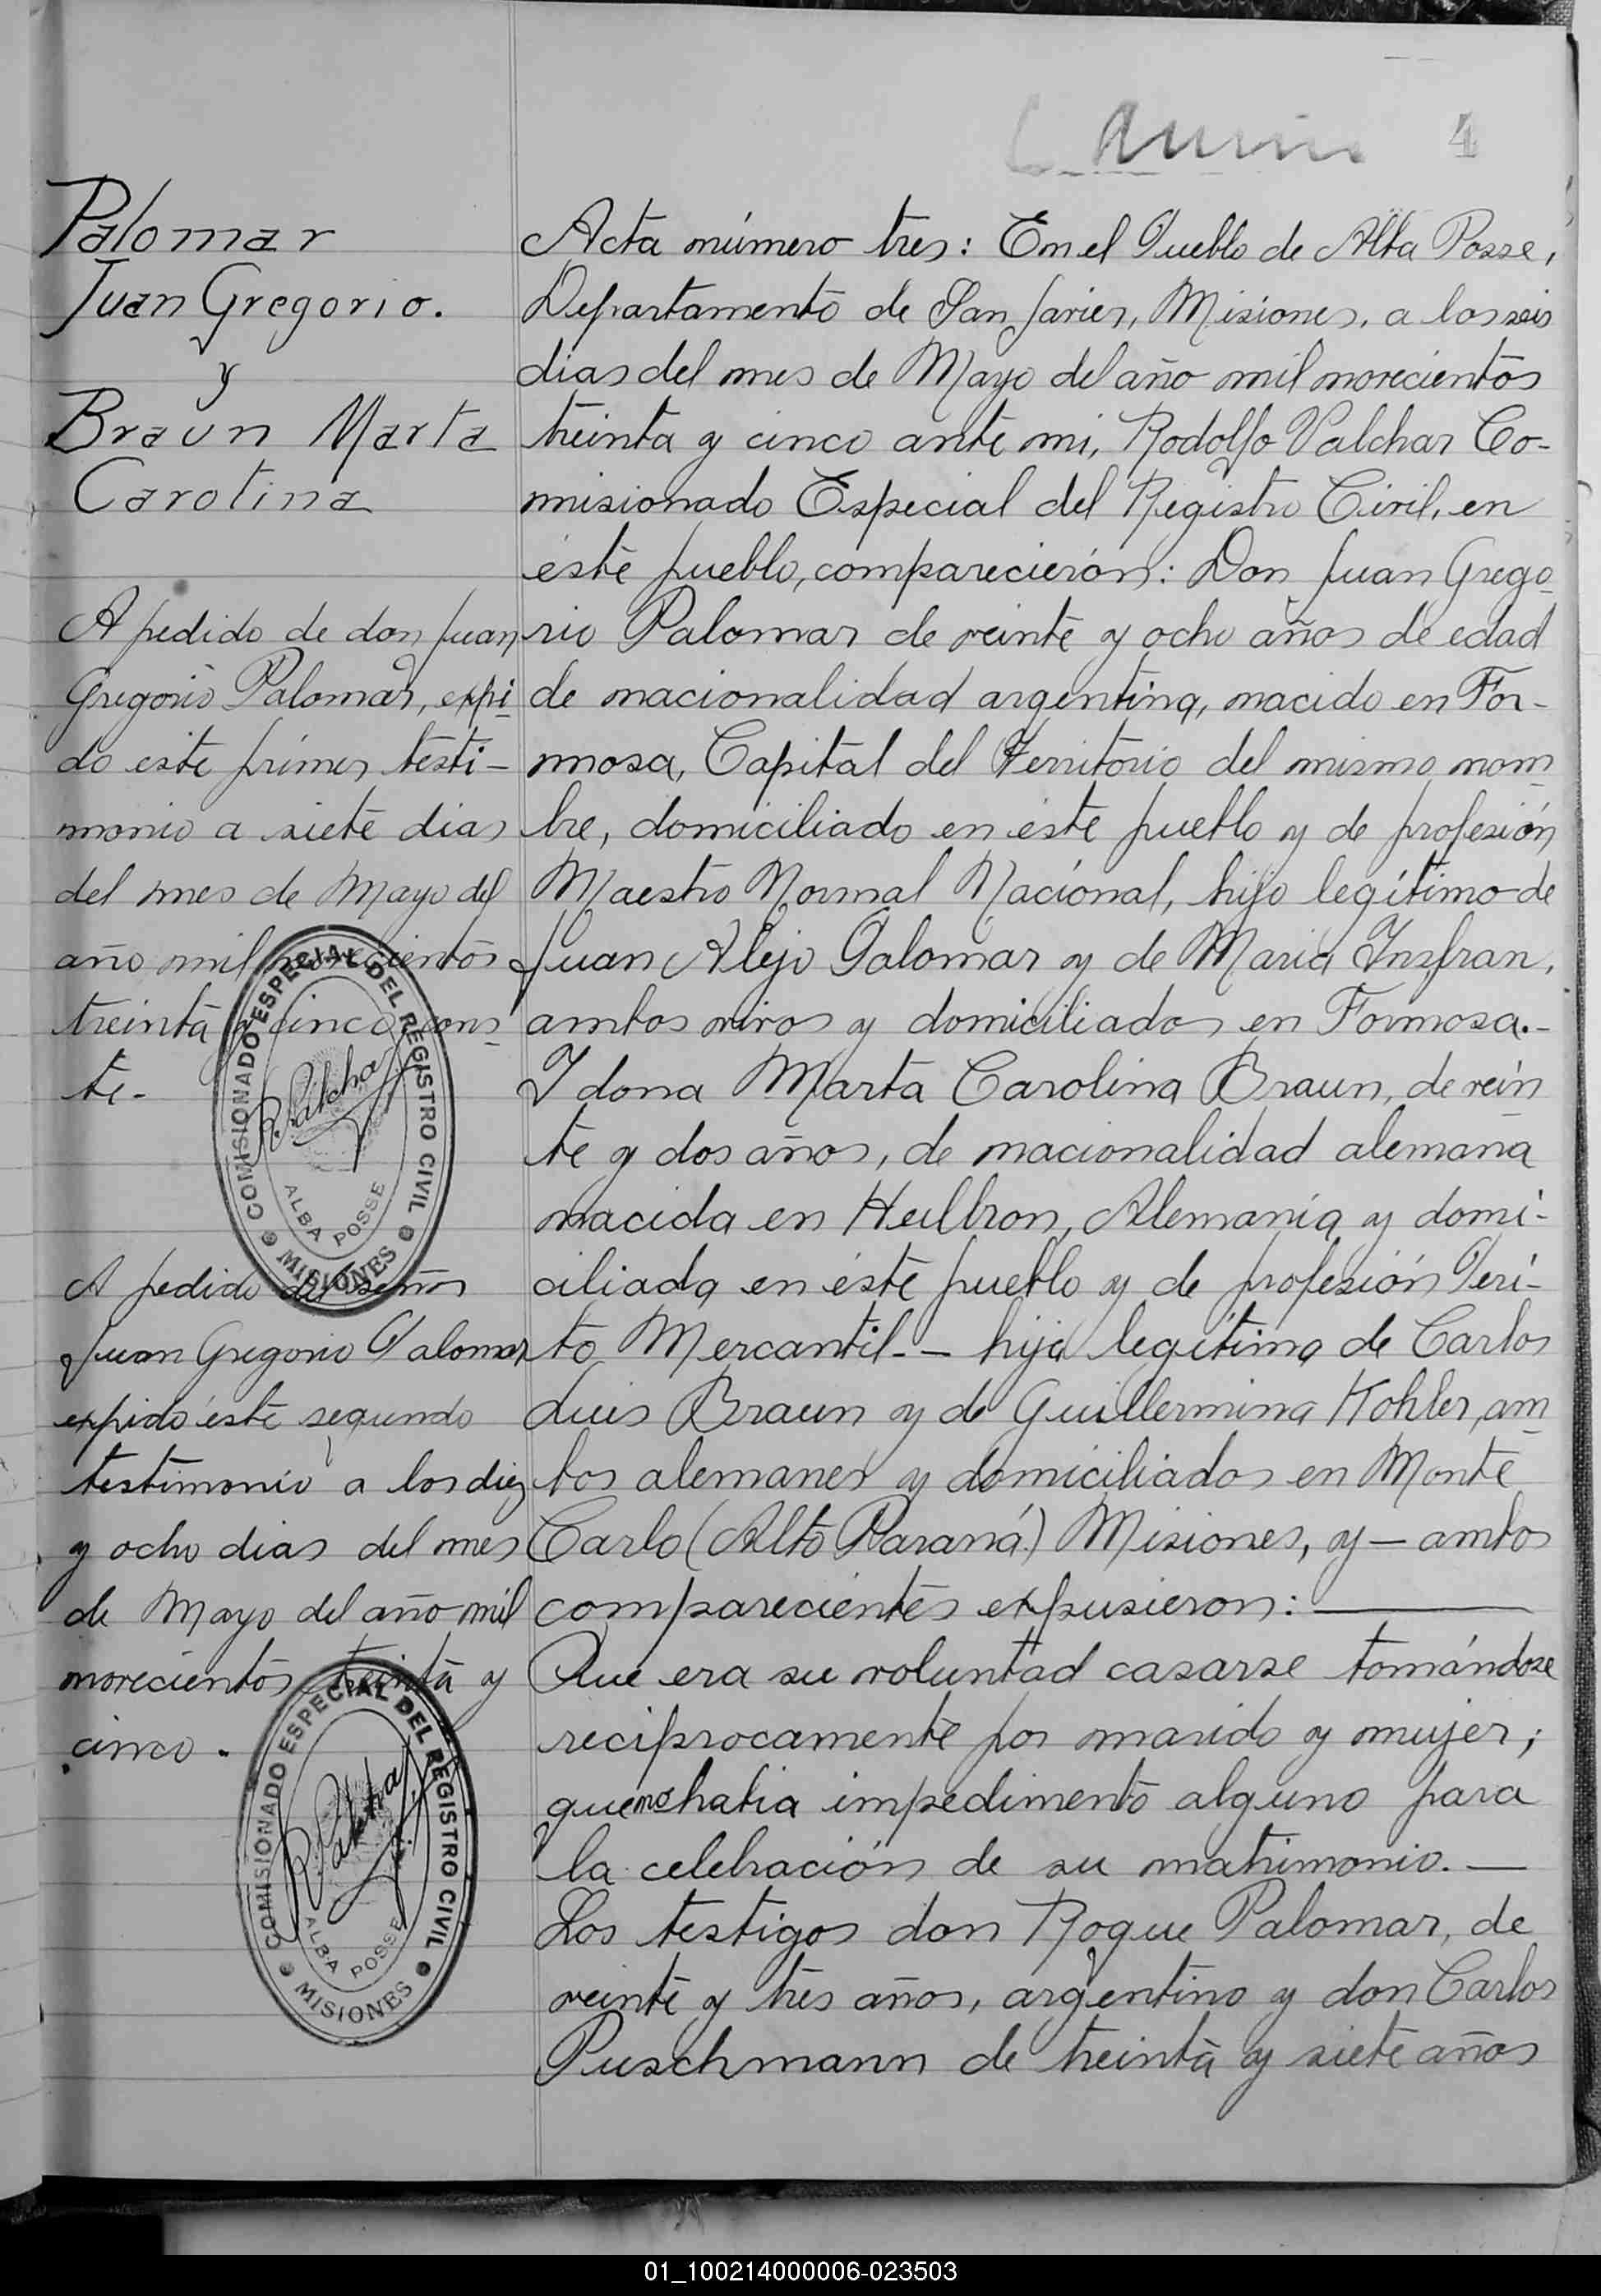 4
Palomar
Juan Gregorio.
y
Braun Marta
Carolina
A pedido de don Juan
Gregorio Palomar, expi-
do este primer testi-
monio a siete dias
del mes de Mayo del
año mil novecientos
treinta y cinco, cons-
te-
COMISIONADO ESPECIAL DEL REGISTRO CIVIL
ALBA POSSE
MISIONES
A pedido del señor
Juan Gregorio Palomar
expido éste segundo
testimonio a los diez
y ocho dias del mes
de Mayo del año mil
novecientos treinta y
cinco.
COMISIONADO ESPECIAL DEL REGISTRO CIVIL
ALBA POSSE
MISIONES
Acta número tres: En el Pueblo de Alba Posse,
Departamento de San Javier, Misiones, a los seis
dias del mes de Mayo del año mil novecientos
treinta y cinco ante mi, Rodolfo Valchar Co-
misionado Especial del Registro Civil, en
éste pueblo, comparecierón: Don Juan Grego-
rio Palomar de veinte y ocho años de edad
de nacionalidad argentina, nacido en For-
mosa, Capital del Territorio del mismo nom-
bre, domiciliado en éste pueblo y de profesión
Maestro Normal Nacional, hijo legítimo de
Juan Alejo Palomar y de Maria Insfran,
ambos vivos y domiciliados en Formosa.-
I dona Marta Carolina Braun, de vein-
te y dos años, de nacionalidad alemana
nacida en Heilbron, Alemania y domi-
ciliada en éste pueblo y de profesión Peri-
to Mercantil.- hija legítima de Carlos
Luis Braun y de Guillermina Kohler, am-
bos alemanes y domiciliados en Monte
Carlo (Alto Paraná) Misiones, y - ambos
comparecientes expusieron: -
Que era su voluntad casarse tomándose
reciprocamente por marido y mujer;
que no habia impedimento alguno para
la celebración de su matrimonio. -
Los testigos don Roque Palomar, de
veinte y tres años, argentino y don Carlos
Puschmann de treinta y siete años
01_100214000006-023503